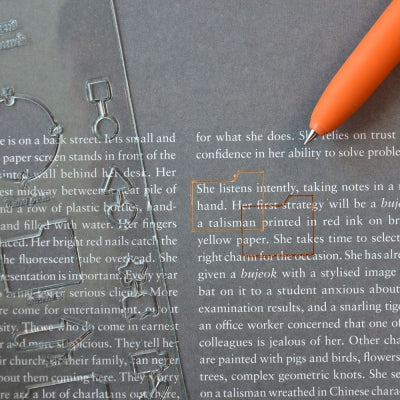 e is on a back street. It is small and
paper screen stands in front of the
inted wall behind her desk. Her
est midway between a neat pile of
and a row of plastic bottles, hand-
and filled with water. Her fingers
laced. Her bright red nails catch the
the fluorescent tube overhead. She
resentation is important. Every year
bring more serious clients. More
come for entertainment.
sity. Those who do come in earnest
and more suspicious. They tell he
ir church, or their family, can never
out them coming here. They worry
are a lot of charlatans out there,
for what she does. She relies on trust
confidence in her ability to solve proble
She listens intently, taking notes in a
hand. Her first strategy will be a buj
a talisman printed in red ink on br
yellow paper. She takes time to select
right charm for the occasion. She has alr
given a bujeok with a stylised image
bat on it to a student anxious about
examination results, and a snarling tige
an office worker concerned that one of
colleagues is jealous of her. Other cha
are painted with pigs and birds, flowers
trees, complex geometric knots. She se
on a talisman wreathed in Chinese chara